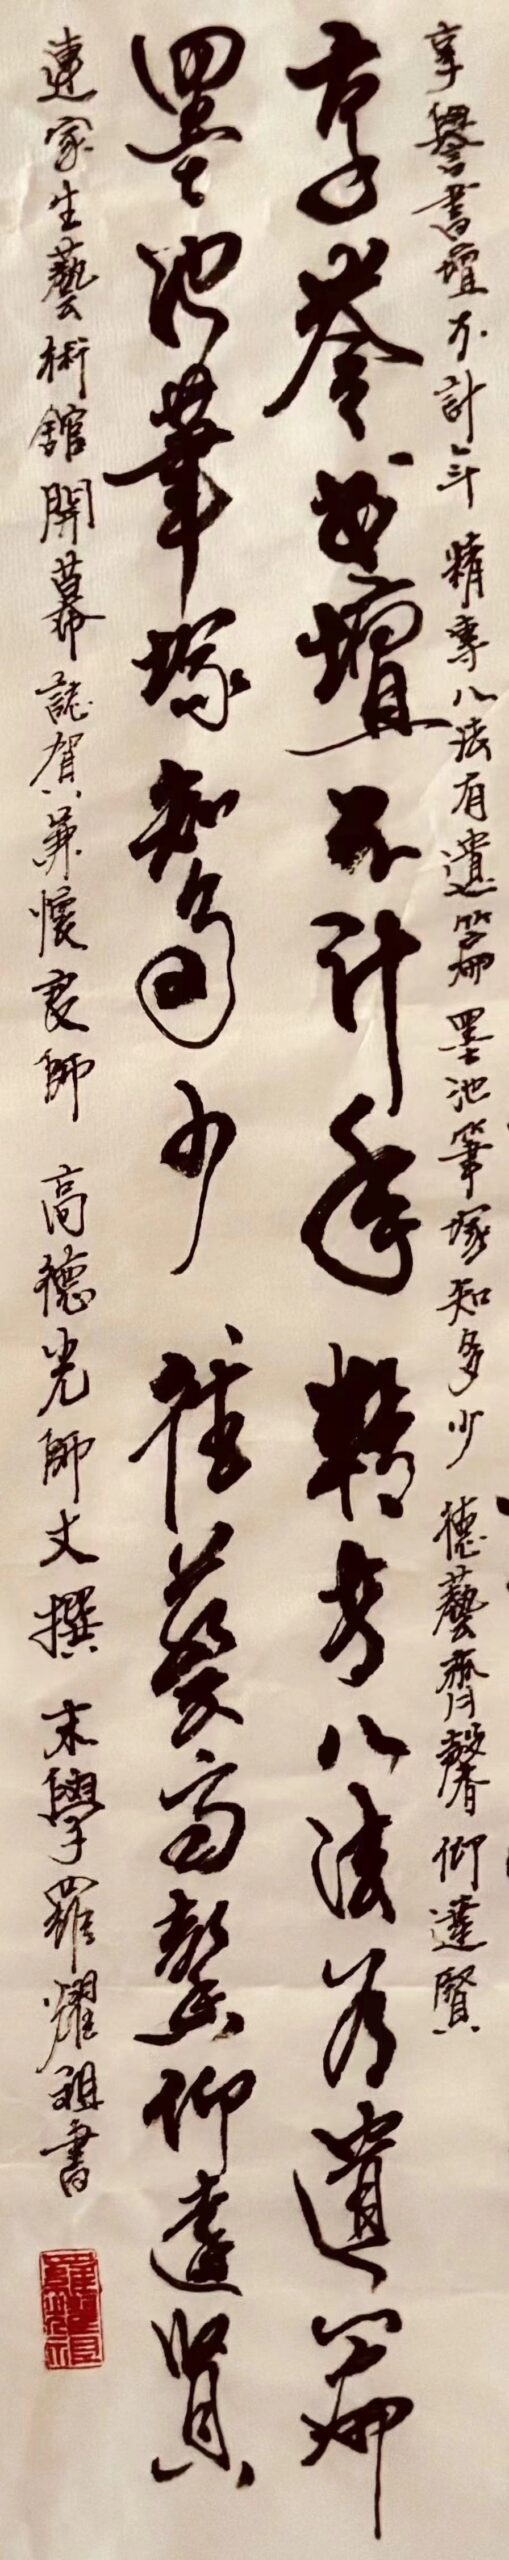 享譽書壇不計年 精專八法有遺篇 墨池筆塚知多少 德藝齊馨仰達賢
享譽書壇不計年精專八法有遺篇
墨池筆塚知多少 德藝齊馨仰達賢
連家生藝術館開幕誌賀兼懷良師 高德光師丈撰 末學羅耀祖書
羅耀祖